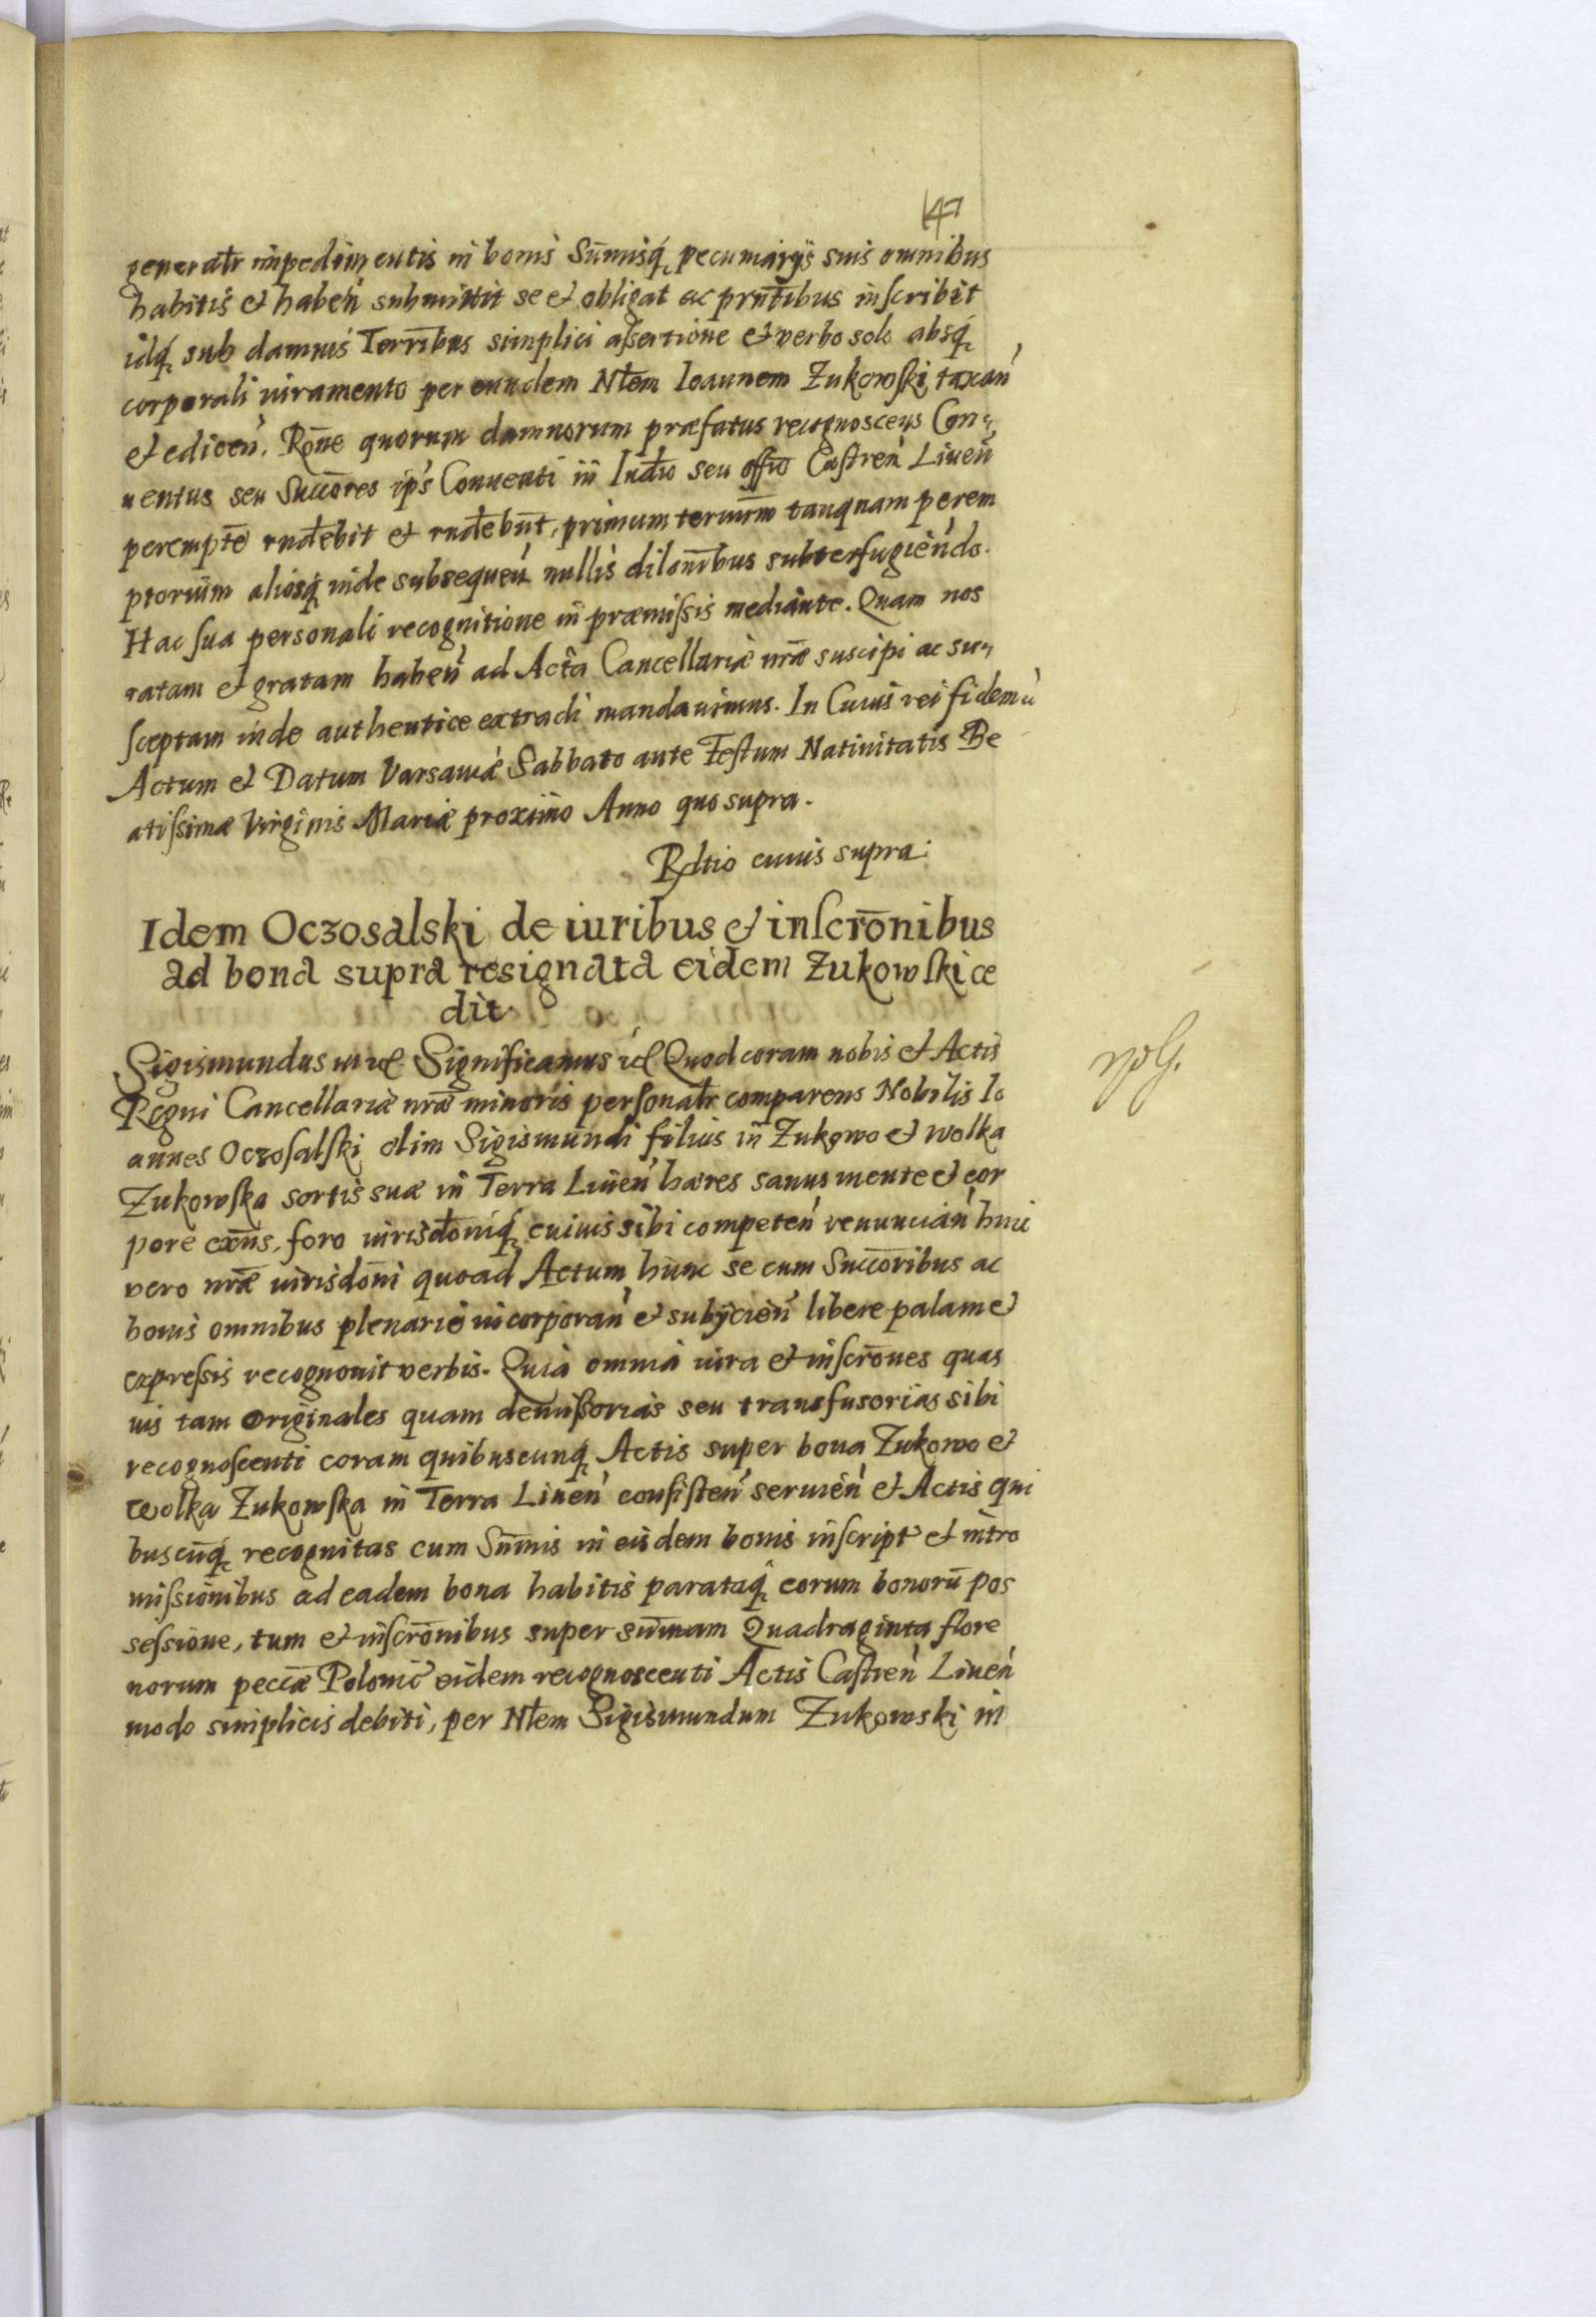 147
generalr̃ impedimentis in bonis Sum̃isq́ pecuniarijs suis omnibus
habitis et habeń submittit se et obligat ac prñtibus inscribit
idq́ sub damnis Terrĩbus simplici assertione et verbo solo absq́
corporali iuramento per eundem Nłem Ioannem Zukowski taxań
et ediceń. Rõne quorum damnorum præfatus recognoscens Con
uentus seu Succõres ips̃ Conuenti in Iudõ seu offõ Castreń Liueń
perempt̃e rñdebit et rñdebũnt, primum termĩm tanquam perem
ptorium aliosq́ inde subsequeń nullis dilõnibus subterfugiendo.
Hac sua personali recognitione in præmissis mediante. Quam nos
ratam et gratam habeń ad Acta Cancellariæ nr̃æ suscipi ac su
sceptam inde authentice extradi mandauimus. In Cuius rei fidem
Actum et Datum Varsauiæ Sabbato ante Festum Natiuitatis Be
atissimæ Virginis Mariæ proximo Anno quo supra.
Rłtio cuius supra.
Idem Oczosalski de iuribus et inscrõnibus
ad bona supra resignata eidem Zukowski ce
dit.
Sigismundus Significamus Quod coram nobis et Actis
Regni Cancellariæ nr̃æ minoris personalr̃ comparens Nobilis Io
annes Oczosalski olim Sigismundi filius in Zukowo et Wolka
Zukowska sortis suæ in Terra Liueń hæres sanus mente et cor
pore exñs, foro iurisdõniq́ cuiuis sibi competeń renunciań huic
vero nr̃æ iurisdõni quoad Actum hunc se cum Succõribus ac
bonis omnibus plenarie incorporań et subijcień libere palam et
expressis recognouit verbis. Quia omnia iura et inscrõnes quas
uis tam Originales quam demissorias seu transfusorias sibi
recognoscenti coram quibuscunq́ Actis super bona Zukowo et
Wolka Zukowska in Terra Liueń consisteń seruień et Actis qui
buscũq́ recognitas cum Sum̃is in eisdem bonis inscript et intro
missionibus ad eadem bona habitis parataq́ eorum bonorũ pos
sessione, tum et inscrõnibus super sum̃am Quadraginta flore
norum pecc̃æ Polonic̃ eidem recognoscenti Actis Castreń Liueń
modo simplicis debiti, per Nłem Sigismundum Zukowski in